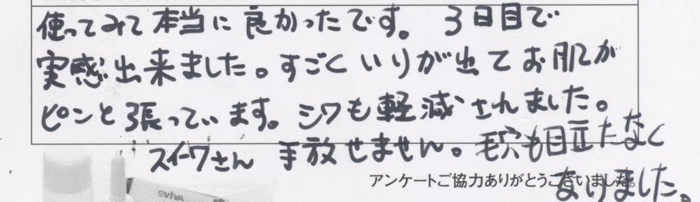 使ってみて本当に良かったです。3日目で
実感出来ました。すごくいりが出てお肌が
ピンと張っています。シワも軽減されました。
スイーワさん 手放せません。毛穴も目立たなく
なりました。
アンケートご協力ありがとうございました。